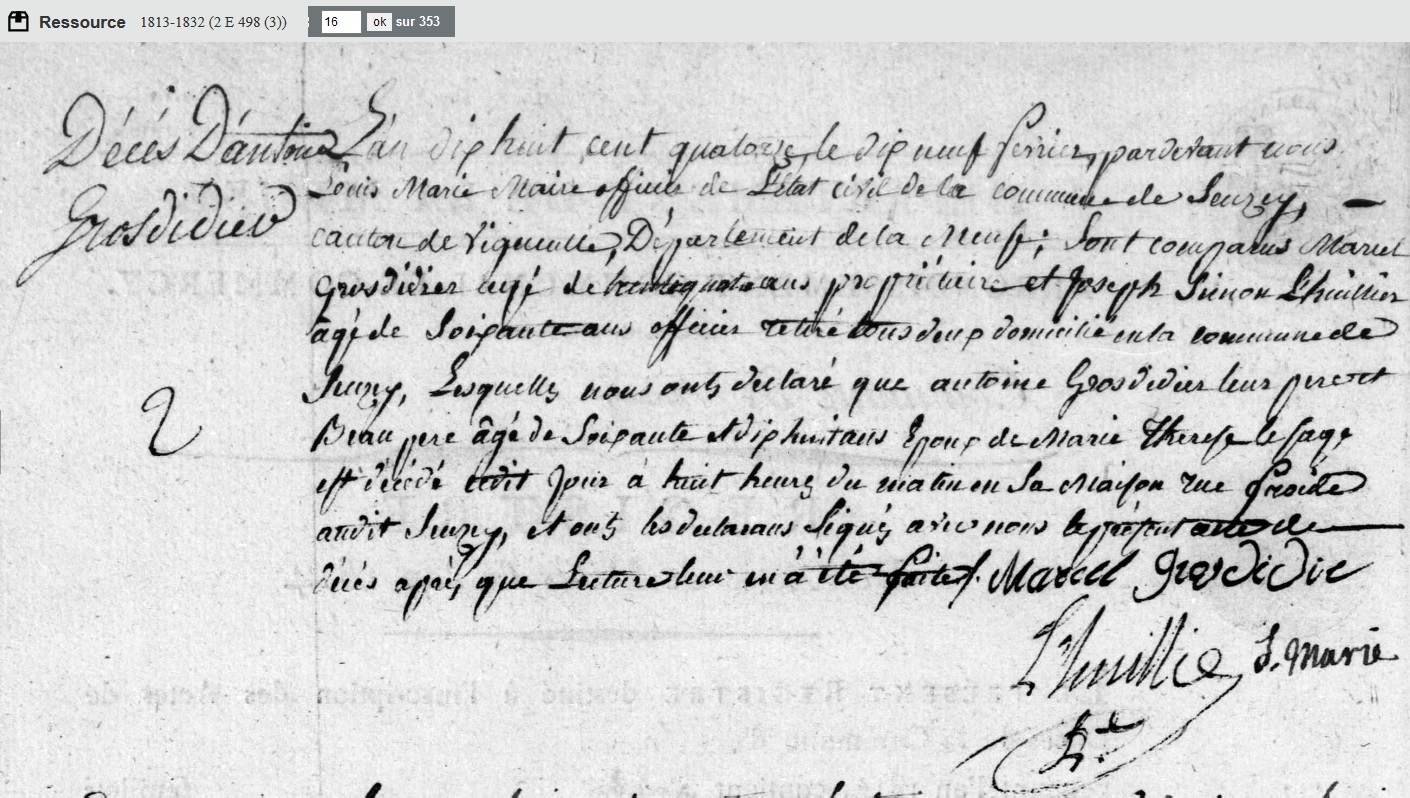 Ressource 1813-1832 (2 E 498 (3)) 16 ok sur 353
Décès D'antoine
Grosdidier
2
L'an dix huit cent quatorze, le dix neuf fevrier, pardevant nous
Louis Marie Maire officier de L'état civil de la commune de Seuzey,
canton de vigneulle, Département de la Meuse; Sont comparus Marcel
Grosdidier agé de ans propriétaire et Joseph Simon Lhuillier
âgé de Soixante ans officier retiré tous deux domicilié en la commune de
Seuzey, Lesquelles nous onts declaré que antoine Grosdidier leur pere et
Beau pere âgé de Soixante et dix huit ans Epoux de Marie Therese le sage
est décédé cedit Jour à huit heures du matin en Sa Maison rue froide
audit Seuzey, et onts les declarans Signés avec nous le présent acte de
décés après que Lecture leur en à été faite. Marcel Grosdidie
Lhuillie L. Marie
R.t
PRÉSENT REGISTRE destiné à l'inscription des Actes de